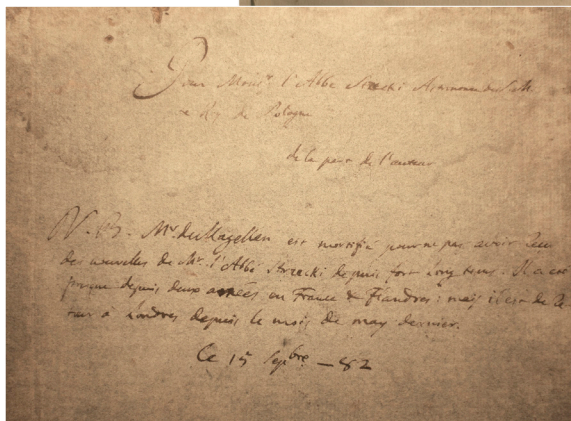 Pour Monsr. l'Abbé Strzecki Astronome du S. M.
le Roy de Pologne
de la part de l'auteur
N.B. Mr. de Magellan est mortifié pour ne pas avoir eu
des nouvelles de Mr. l'Abbé Strzecki depuis fort long tems. Il a été
presque depuis deux années en France & Flandres: mais il est de re-
tour à Londres depuis le mois de may dernier.
Ce 15 Sepbre - 82